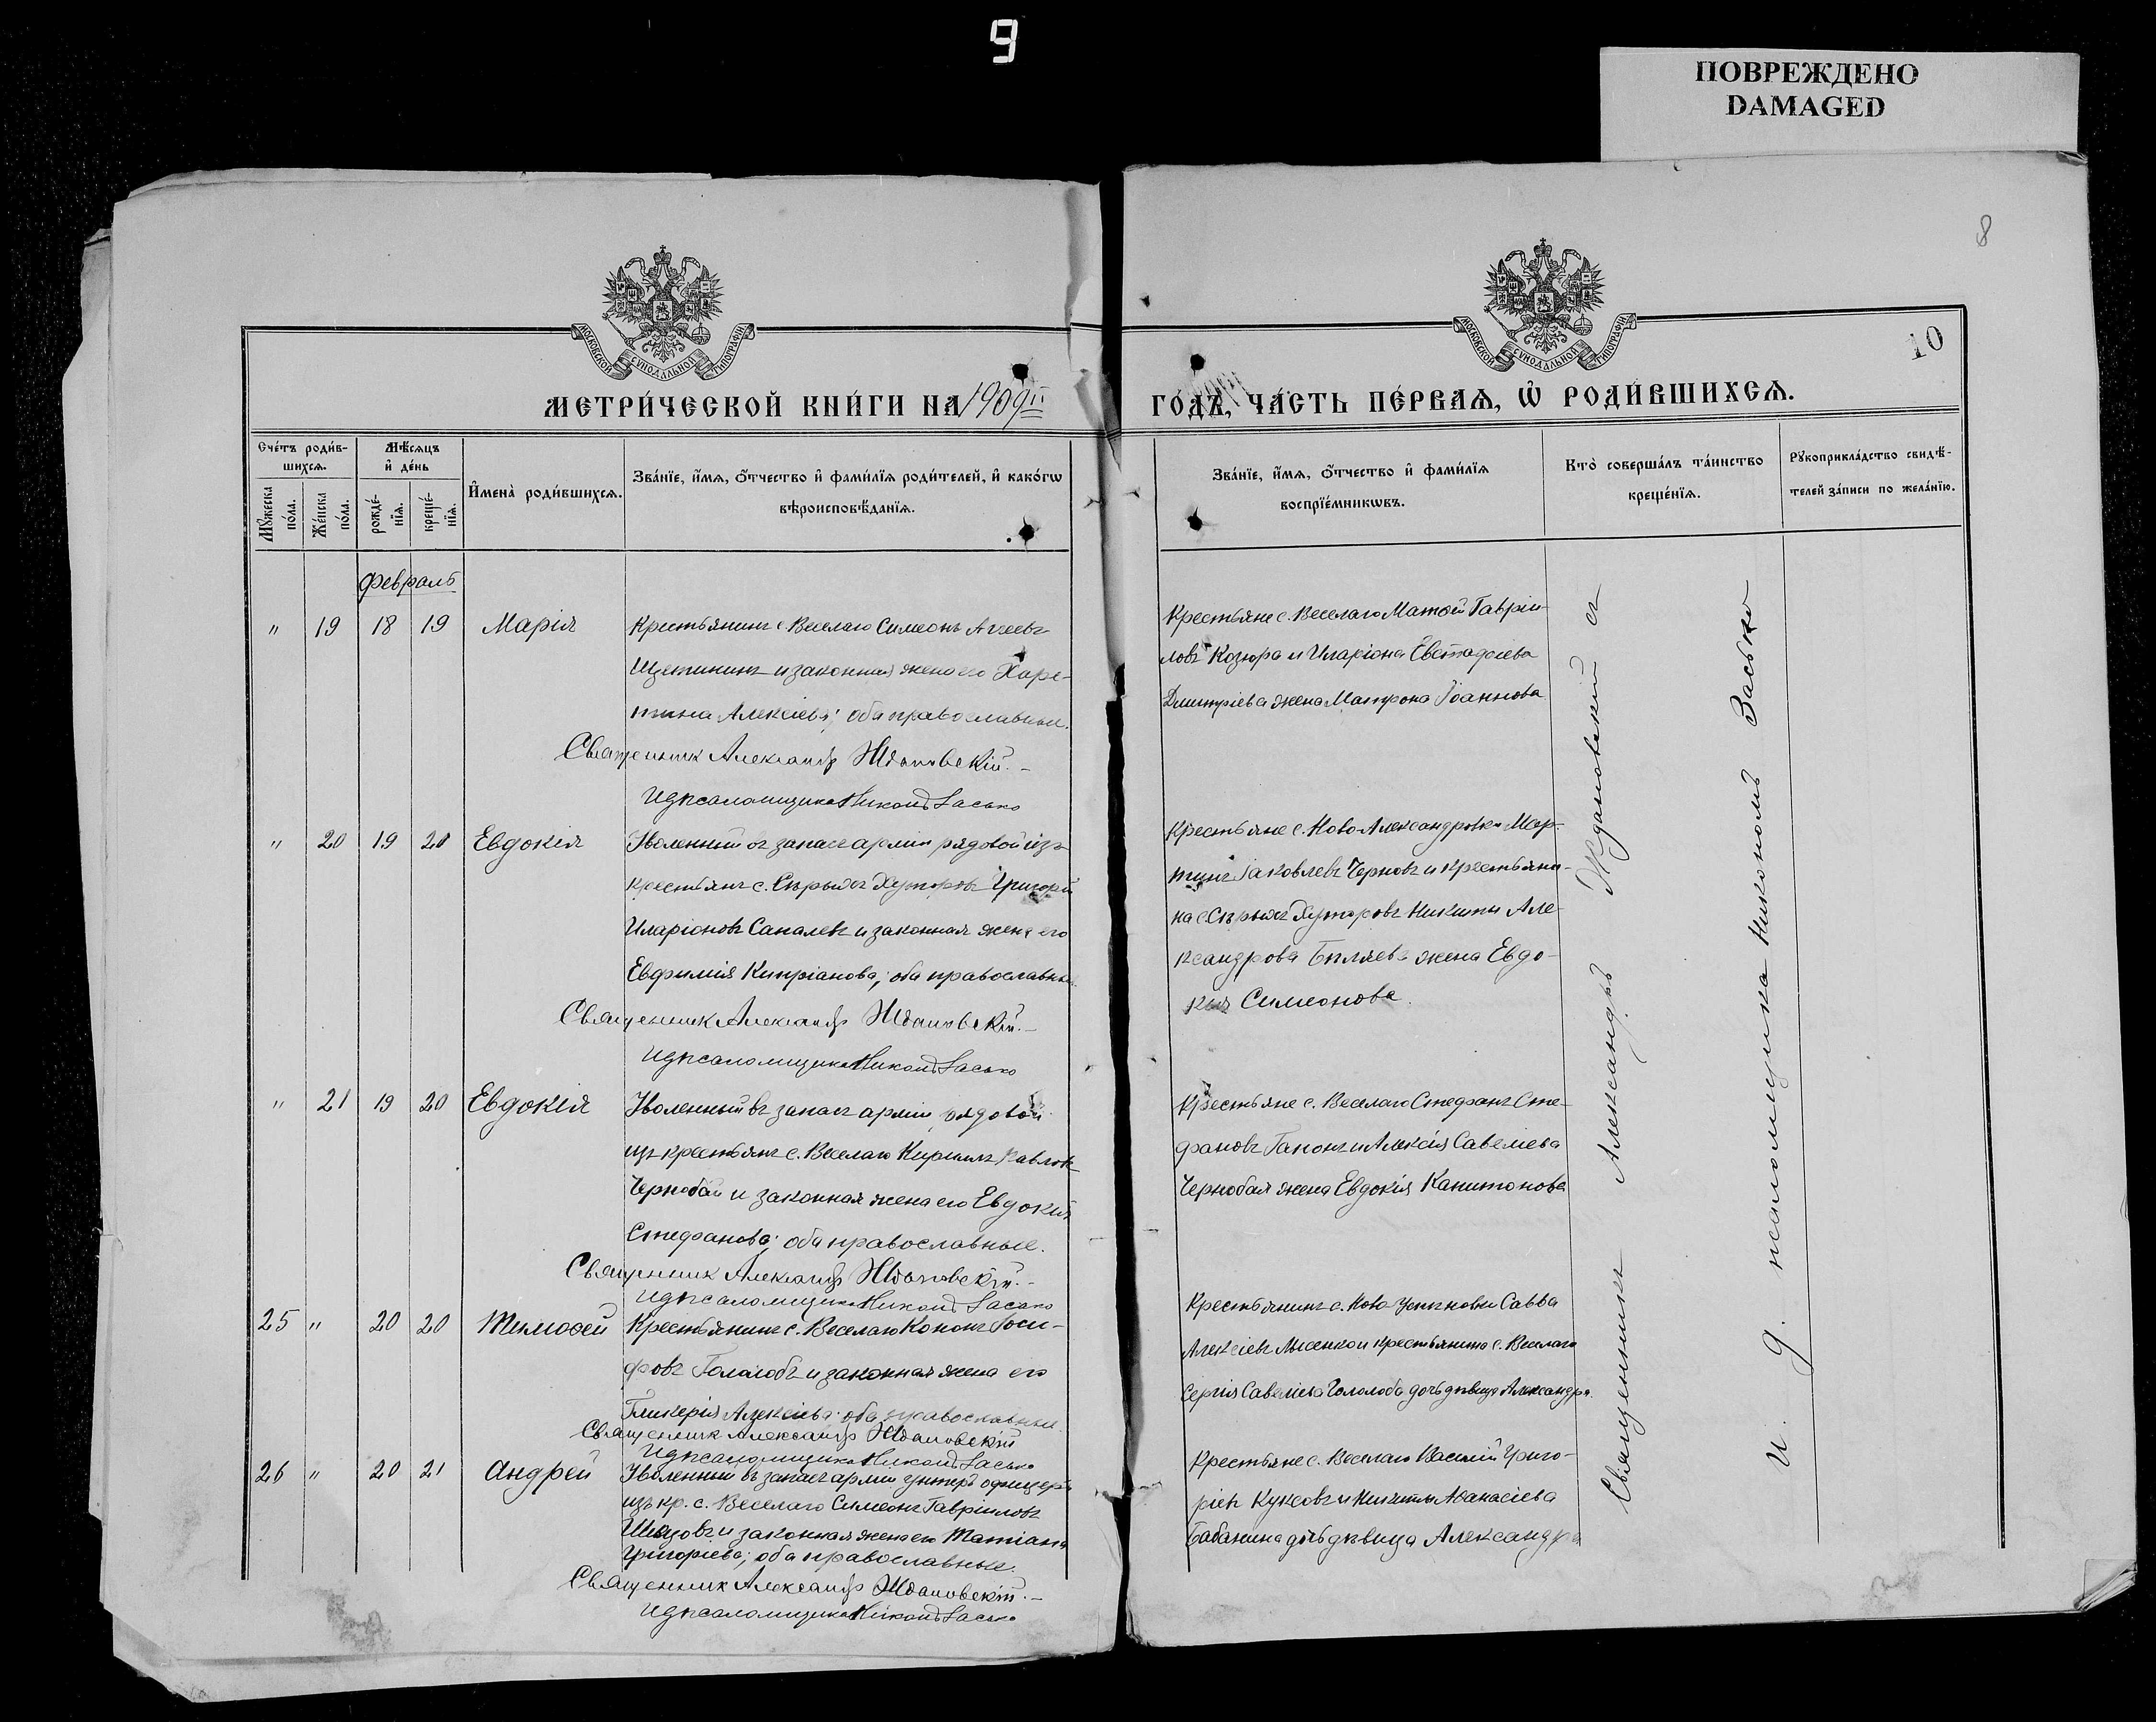 9
ПОВРЕЖДЕНО
DAMAGED
8
10
МОСКОВСКОЙ СѴНОДАЛЬНОЙ ТИПОГРАФІИ
МОСКОВСКОЙ СѴНОДАЛЬНОЙ ТИПОГРАФІИ
МЕТРИ́ЧЕСКОЙ КНИ́ГИ НА 1909й
ГО́ДЪ, ЧА́СТЬ ПЕ́РВАЯ, Ѡ҆ РОДИ́ВШИХСЯ.
Сче́тъ роди́в-
шихся.
Мꙋ́жеска по́ла.
Же́нска по́ла.
Мѣ́сяцъ
и҆ де́нь
рожде́-
нїя.
креще́-
нїя.
И҆мена̀ роди́вшихся.
Зва́нїе, и҆́мя, ѻ҆́тчество и҆ фами́лїя роди́телей, и҆ како́гѡ
вѣроисповѣ́данїя.
Зва́нїе, и҆́мя, ѻ҆́тчество и҆ фами́лїя
воспрїе́мникѡвъ.
Кто̀ соверша́лъ та́инство
креще́нїя.
Рꙋкоприкла́дство свидѣ́-
телей за́писи по жела́нїю.
Февраль
" 19 18 19 Марія
Крестьянинъ с. Веселаго Симеонъ Агеевъ
Щетининъ и законная жена его Хари-
тина Алексіева; оба православные.
Священник Александр Ждановскій.-
Идпсаломщика Никонъ Засько
Крестьяне с. Веселаго Матѳей Гавріи-
ловъ Козюра и Иларіона Евстафіева
Димитріева жена Матрона Іоаннова
" 20 19 20 Евдокія
Уволенный въ запасъ арміи рядовой изъ
крестьянъ с. Сѣрыхъ Хуторовъ Григорій
Иларіоновъ Сапалевъ и законная жена его
Евфимія Кипріанова; оба православные.
Священник Александр Ждановскій.-
Идпсаломщика Никонъ Засько
Крестьяне с. Ново-Александровки Мар-
тинъ Іаковлевъ Черновъ и крестьяни-
на с. Сѣрыхъ Хуторовъ Никиты Але-
ксандрова Бѣляева жена Евдо-
кія Симеонова.
" 21 19 20 Евдокія
Уволенный въ запасъ арміи рядовой
изъ крестьянъ с. Веселаго Кириллъ Павловъ
Чернобай и законная жена его Евдокія
Стефанова; оба православные.
Священник Александр Ждановскій.-
Идпсаломщика Никонъ Засько
Крестьяне с. Веселаго Стефанъ Сте-
фановъ Гапонъ и Алексія Савеліева
Чернобая жена Евдокія Капитонова
25 " 20 20 Тимоѳей
Крестьянинъ с. Веселаго Кононъ Іоси-
фовъ Гололобъ и законная жена его
Гликерія Алексіева; оба православные.
Священник Александр Ждановскій
Идпсаломщика Никонъ Засько
Крестьянинъ с. Ново Успеновки Савва
Алексіевъ Лысенко и крестьянина с. Веселаго
Сергія Савеліева Гололоба дочь дѣвица Александра.
26 " 20 21 Андрей
Уволенный въ запасъ арміи унтеръ офицеръ
изъ кр. с. Веселаго Симеонъ Гавріиловъ
Швецовъ и законная жена его Татіана
Григоріева; оба православные.
Священник Александр Ждановскій.-
Идпсаломщика Никонъ Засько
Крестьяне с. Веселаго Василій Григо-
ріевъ Куксовъ и Никиты Аѳанасіева
Бабанина дочь дѣвица Александра
Священникъ Александръ Ждановскій съ
и. д. псаломщика Никономъ Засько